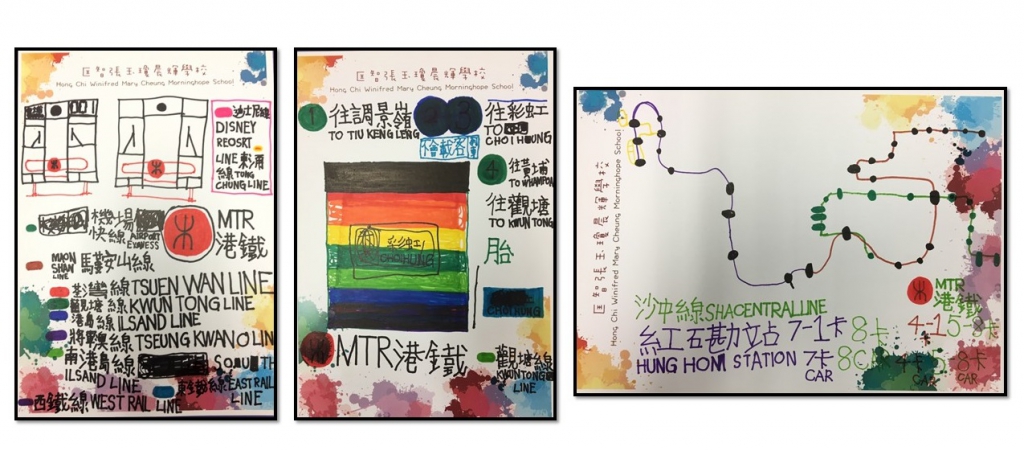 匡智張玉瓊晨輝學校
Hong Chi Winifred Mary Cheung Morninghope School
迪士尼綫
DISNEY
REOSRT
LINE 東涌
線 TONG
CHUNG LINE
機場
快線 AIRPORT
EXPRESS
MTR
港鐵
MAON
SHAN
LINE
馬鞍山線
荃灣線 TSUEN WAN LINE
觀塘線 KWUN TONG LINE
港島線 ILSAND LINE
將軍澳線 TSEUNG KWAN O LIN
南港島線 SOUTH
ILSAND LINE
東鐵線 EAST RAIL
LINE
西鐵線 WEST RAIL LINE
匡智張玉瓊晨輝學校
Hong Chi Winifred Mary Cheung Morninghope School
1 往調景嶺
TO TIU KENG LENG
3 往彩虹
TO CHOI HUNG
不會載客
4 往黃埔
TO WHAMPOA
往觀塘
TO KWUN TONG
胎
彩虹
CHOI HUNG
CHOI HUNG
MTR港鐵
觀塘線
KWUN TONG
LINE
匡智張玉瓊晨輝學校
Hong Chi Winifred Mary Cheung Morninghope School
MTR
港鐵
沙中線 SHACENTRALLINE
紅五勘立站 7-1卡 8卡 4-15-8卡
HUNG HOM STATION 7卡
CAR
8卡
CAR